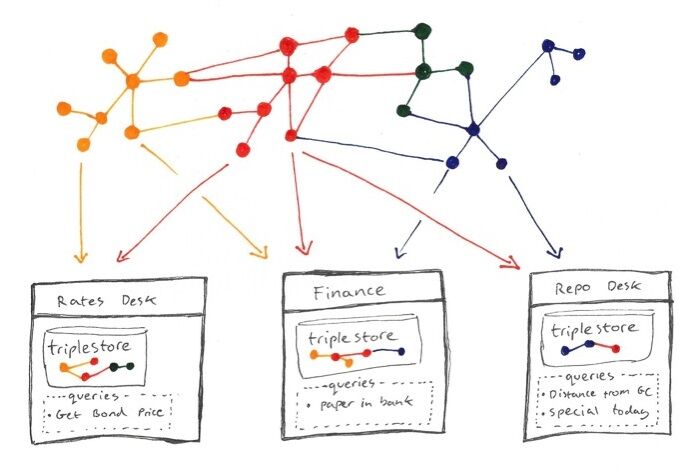 Rates Desk
triplestore
queries
• Get Bond Price
Finance
triplestore
queries
• paper in bank
Repo Desk
triplestore
queries
• Distance from GC
• special today